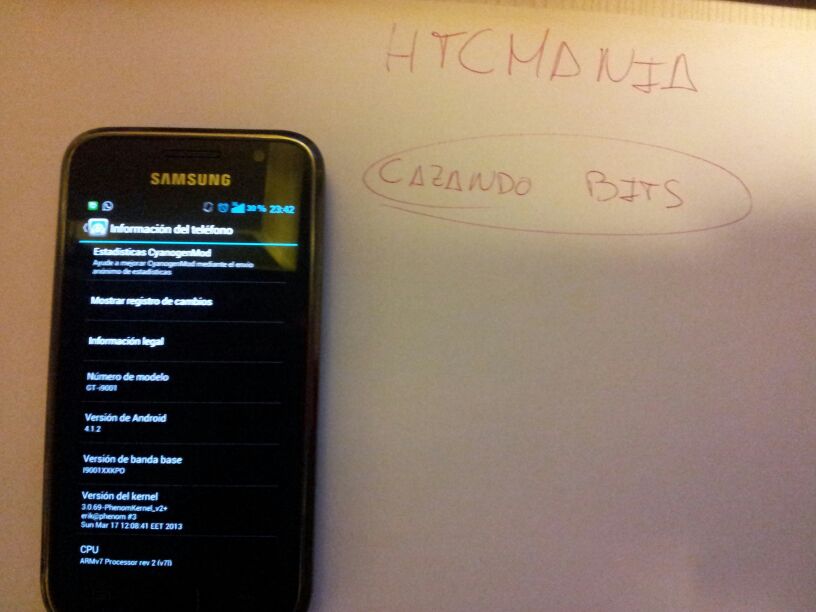 HTCMANIA
CAZANDO BITS
SAMSUNG
30 % 23:42
Información del teléfono
Estadísticas CyanogenMod
Ayude a mejorar CyanogenMod mediante el envío
anónimo de estadísticas
Mostrar registro de cambios
Información legal
Número de modelo
GT-i9001
Versión de Android
4.1.2
Versión de banda base
I9001XXKPO
Versión del kernel
3.0.69-PhenomKernel_v2+
erik@phenom #3
Sun Mar 17 12:08:41 EET 2013
CPU
ARMv7 Processor rev 2 (v7l)